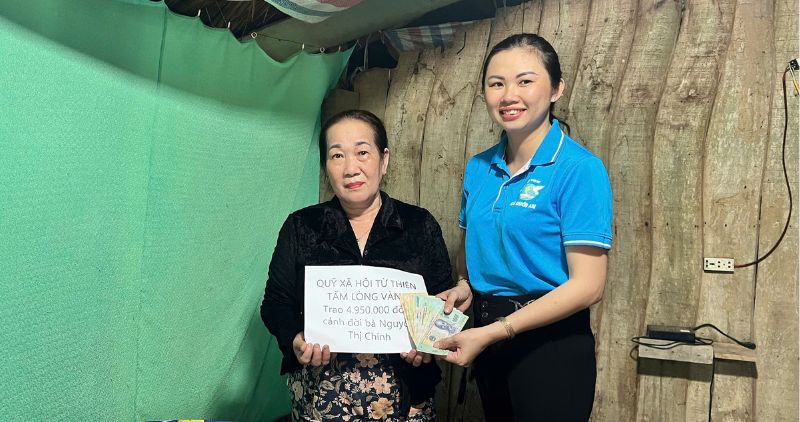 QUỸ XÃ HỘI TỪ THIỆN
TẤM LÒNG VÀN
Trao 4.950.000 đồ
cảnh đời bà Nguy
Thị Chinh